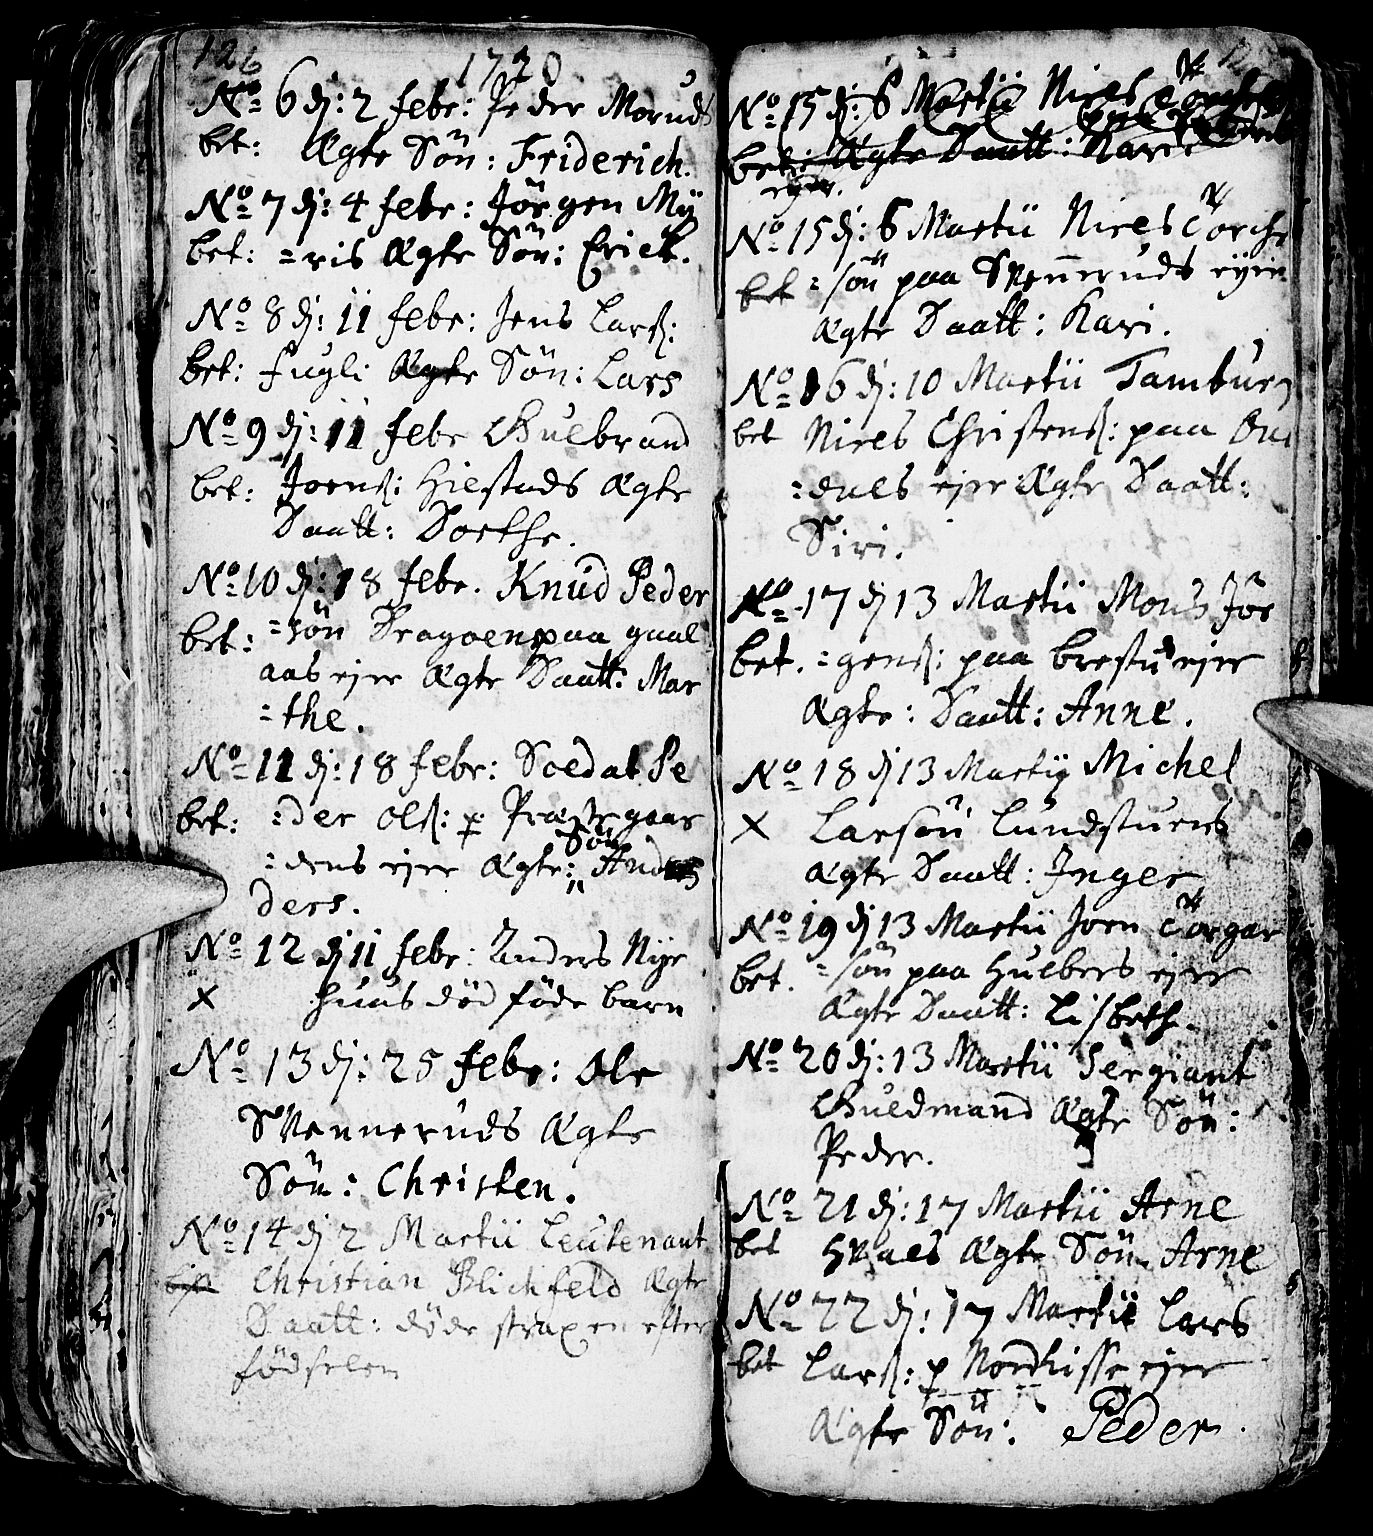 126
1720
No 6 dj: 2 febr: Peder Moruds
bet: Ægte Sön: Friderich.
No 7 dj: 4 febr: Jörgen My
bet: =ris Ægte Sön: Erick.
No 8 dj: 11 febr: Jens Larß:
bet: fugli Ægte Sön: Lars
No 9 dj: 11 febr Gulbrand
bet: Joenß: Hiestads Ægte
Daatt: Dorthe.
No 10 dj: 18 febr. Knud Peder
bet: =sön Dragoen paa gaal
aas ejer Ægte Daatt: Mar
=the.
No 11 dj: 18 febr: Soldat Pe
bet: =der Olß: p Præstegaar
=dens ejer Ægte: Sön
ders.
No 12 dj 11 febr: Anders Nye
x huus död föde barn
No 13 dj: 25 febr: Ole
Skenneruds Ægte
Sön: Christen.
No 14 dj 2 Martii Leutenant
Christian Blichfeld Ægte
Daatt: döde strax en efter
födselen
No 15 dj: 6 Martii Niels
bet: Ægte Daatt: Kari
ejer.
No 15 dj: 6 Martii Niels Torche
bet =sön paa Skenneruds ejer
Ægte Daatt: Kari.
No 16 dj: 10 Martii Tambur
bet Niels Christenß: paa
=dals ejer Ægte Daatt:
Siri.
No 17 dj 13 Martii Mons Jör
bet. =genß: paa brestu ejer
Ægte: Daatt: Anne.
No 18 dj 13 Martij Michel
x Larsön Lundstuens
Ægte Daatt: Inger
No 19 dj 13 Martii Joen Torgar
bet. =sön paa Hulbers ejer
Ægte Daatt: Lisbeth.
No 20 dj: 13 Martii Sergiant
Guldmand Ægte Sön:
Peder.
No 21 dj: 17 Martii Arne
bet Hvals Ægte Sön Arne
No 22 dj: 17 Martii Lars
bet Larß: p Nordlisse ejer
Ægte Sön: Peder.